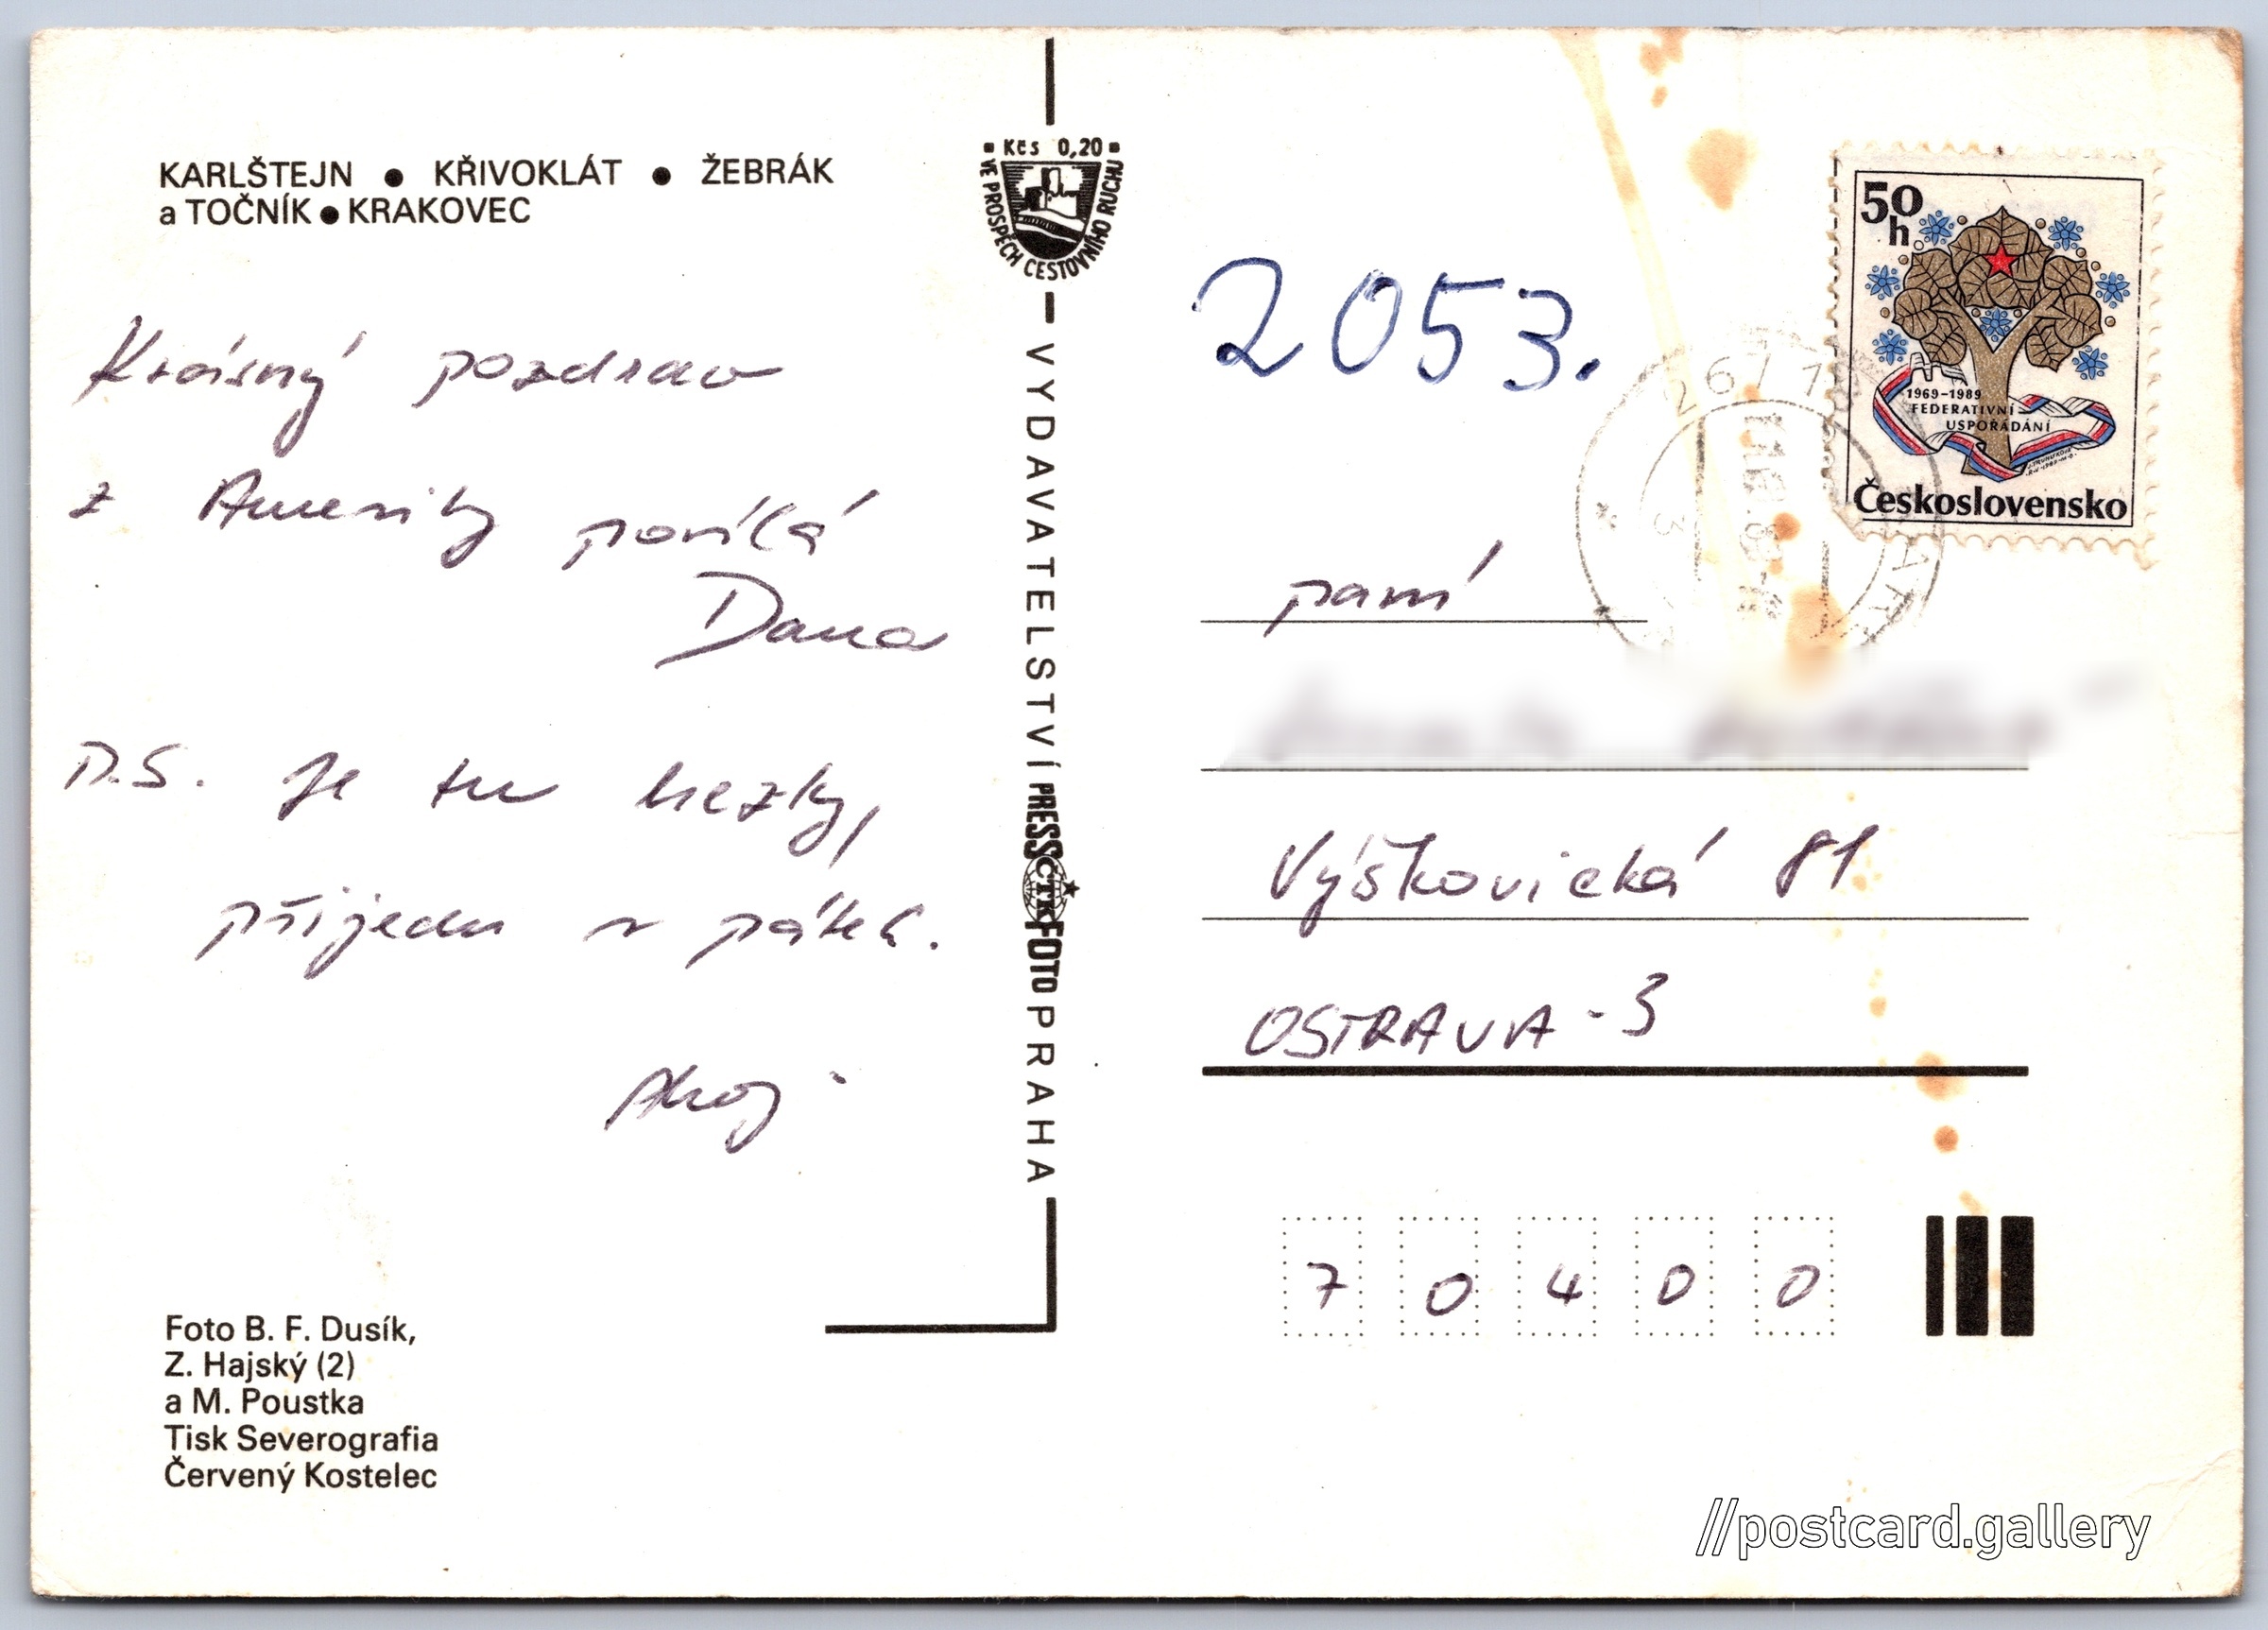 KARLŠTEJN ● KŘIVOKLÁT ● ŽEBRÁK
a TOČNÍK ● KRAKOVEC
Krásný pozdrav
z Ameriky posílá
Dana
P.S. Je tu hezky,
přijedu v pátek.
Ahoj
Foto B. F. Dusík,
Z. Hajský (2)
a M. Poustka
Tisk Severografia
Červený Kostelec
Kčs 0,20
VE PROSPĚCH CESTOVNÍHO RUCHU
VYDAVATELSTVÍ PRESSFOTO PRAHA
ČTK
2053.
50
h
1969-1989
FEDERATIVNÍ
USPOŘÁDÁNÍ
Československo
267 1
paní
Výškovická 81
OSTRAVA - 3
70400
//postcard.gallery